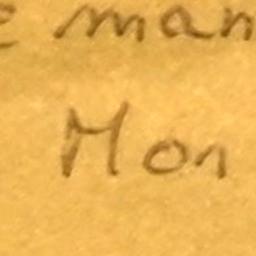 man
Mon